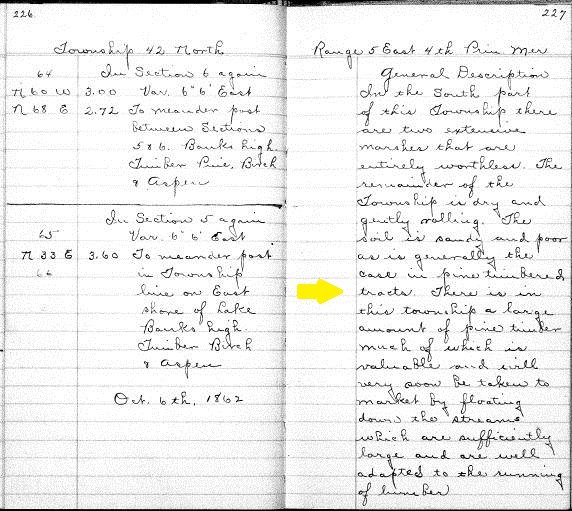 226
Township 42 North
64 In Section 6 again
N 60 W 3.00 Var. 6° 6' East
N 68 E 2.72 To meander post
between Sections
5 & 6. Banks high.
Timber Pine, Birch
& Aspen
In Section 5 again
65 Var. 6° 6' East
N 33 E 3.60 To meander post
66 in Township
line on East
shore of Lake
Banks high.
Timber Birch
& Aspen
Oct. 6th, 1862
227
Range 5 East 4th Prin Mer
General Description
In the South part
of this Township there
are two extensive
marshes that are
entirely worthless. The
remainder of the
Township is dry and
gently rolling. The
soil is sandy and poor
as is generally the
case in pine timbered
tracts. There is in
this township a large
amount of pine timber
much of which is
valuable and will
very soon be taken to
market by floating
down the streams
which are sufficiently
large and are well
adapted to the running
of lumber